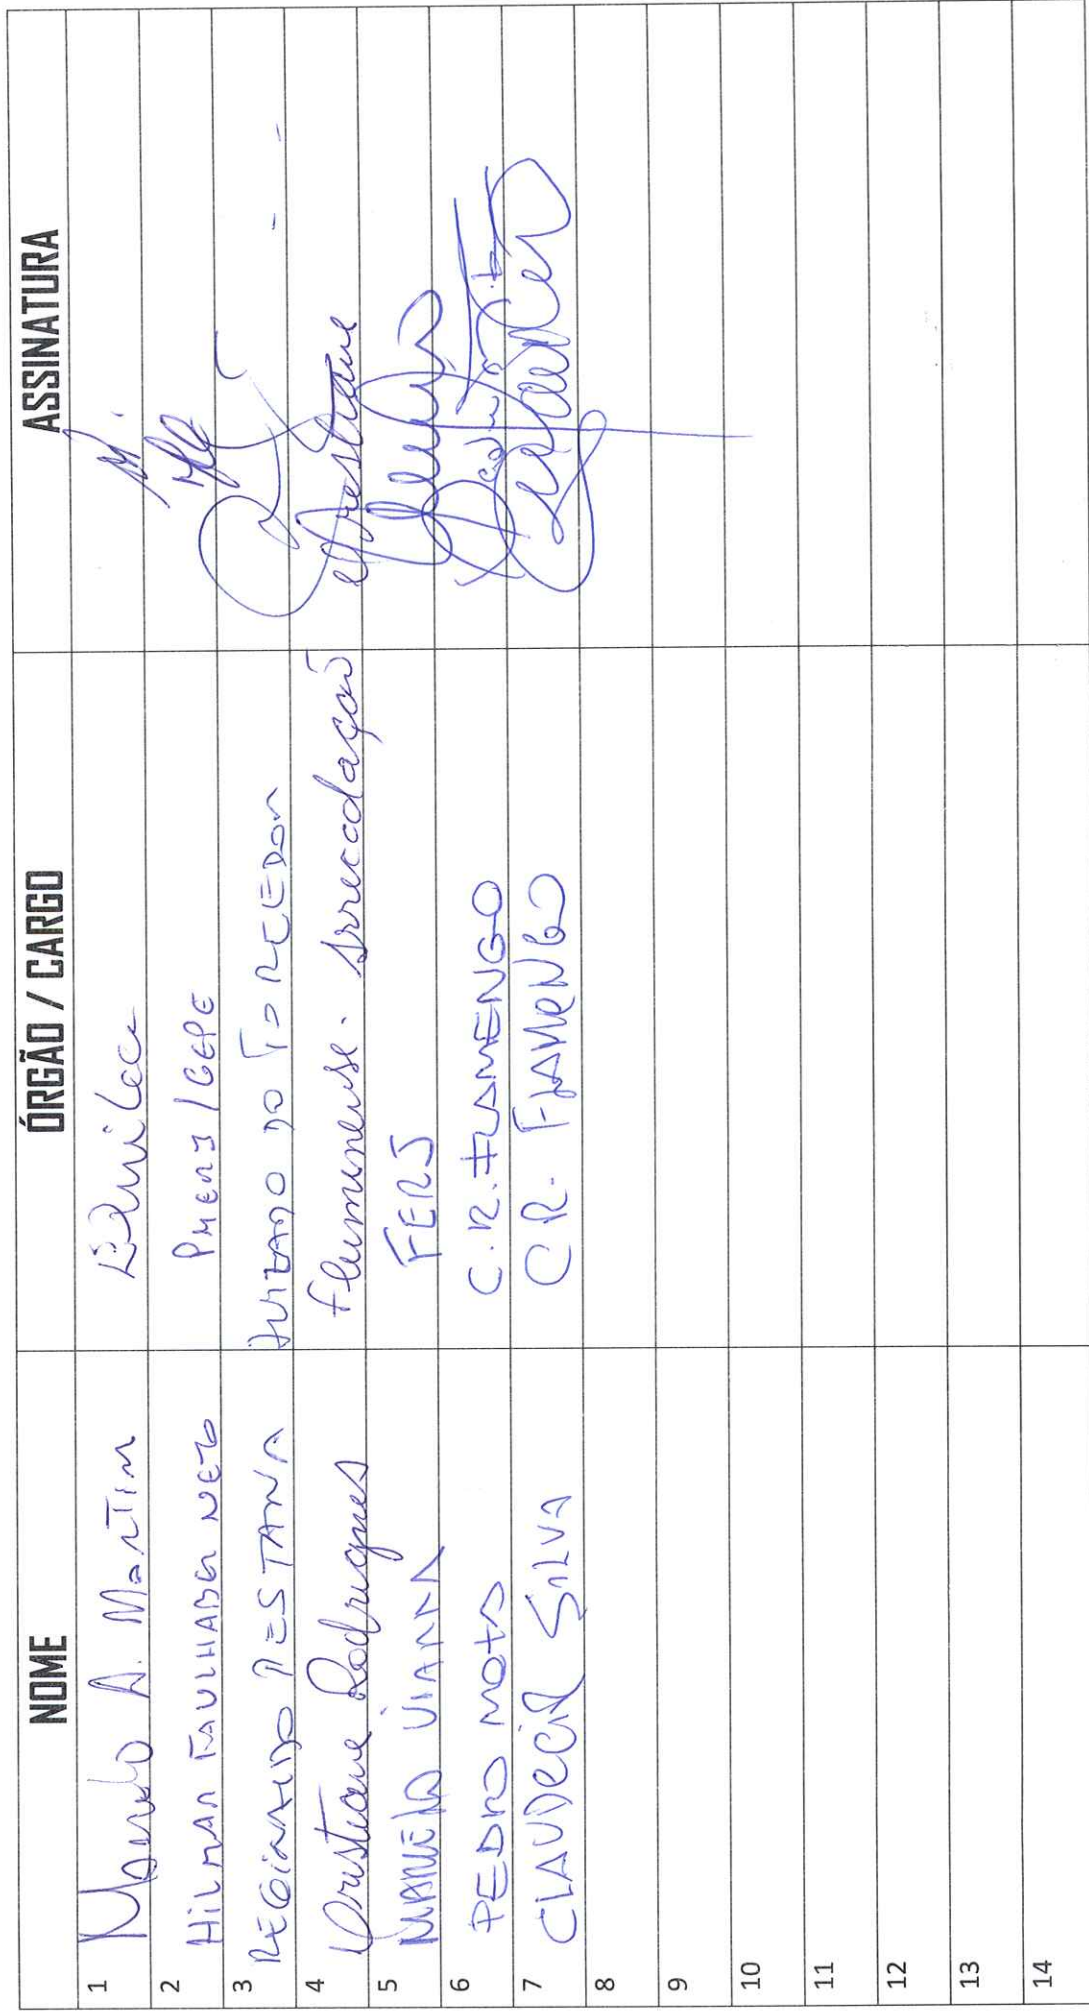 NOME ÓRGÃO / CARGO ASSINATURA
1 A. Martin
2 HILMAR FAULHABER NETO PMERJ / GEPE
3 REGINALDO PESTANA JUIZADO DO TORCEDOR
4 Cristiane Rodrigues Fluminense. Arrecadação Cristiane
5 MARCELO VIANNA FERJ
6 PEDRO MOTA C.R. FLAMENGO
7 CLAUDECIR SILVA C.R. FLAMENGO
8
9
10
11
12
13
14